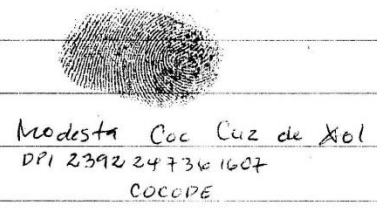 Modesta Coc Cuz de Xol
DPI 2392 24736 1607
COCODE